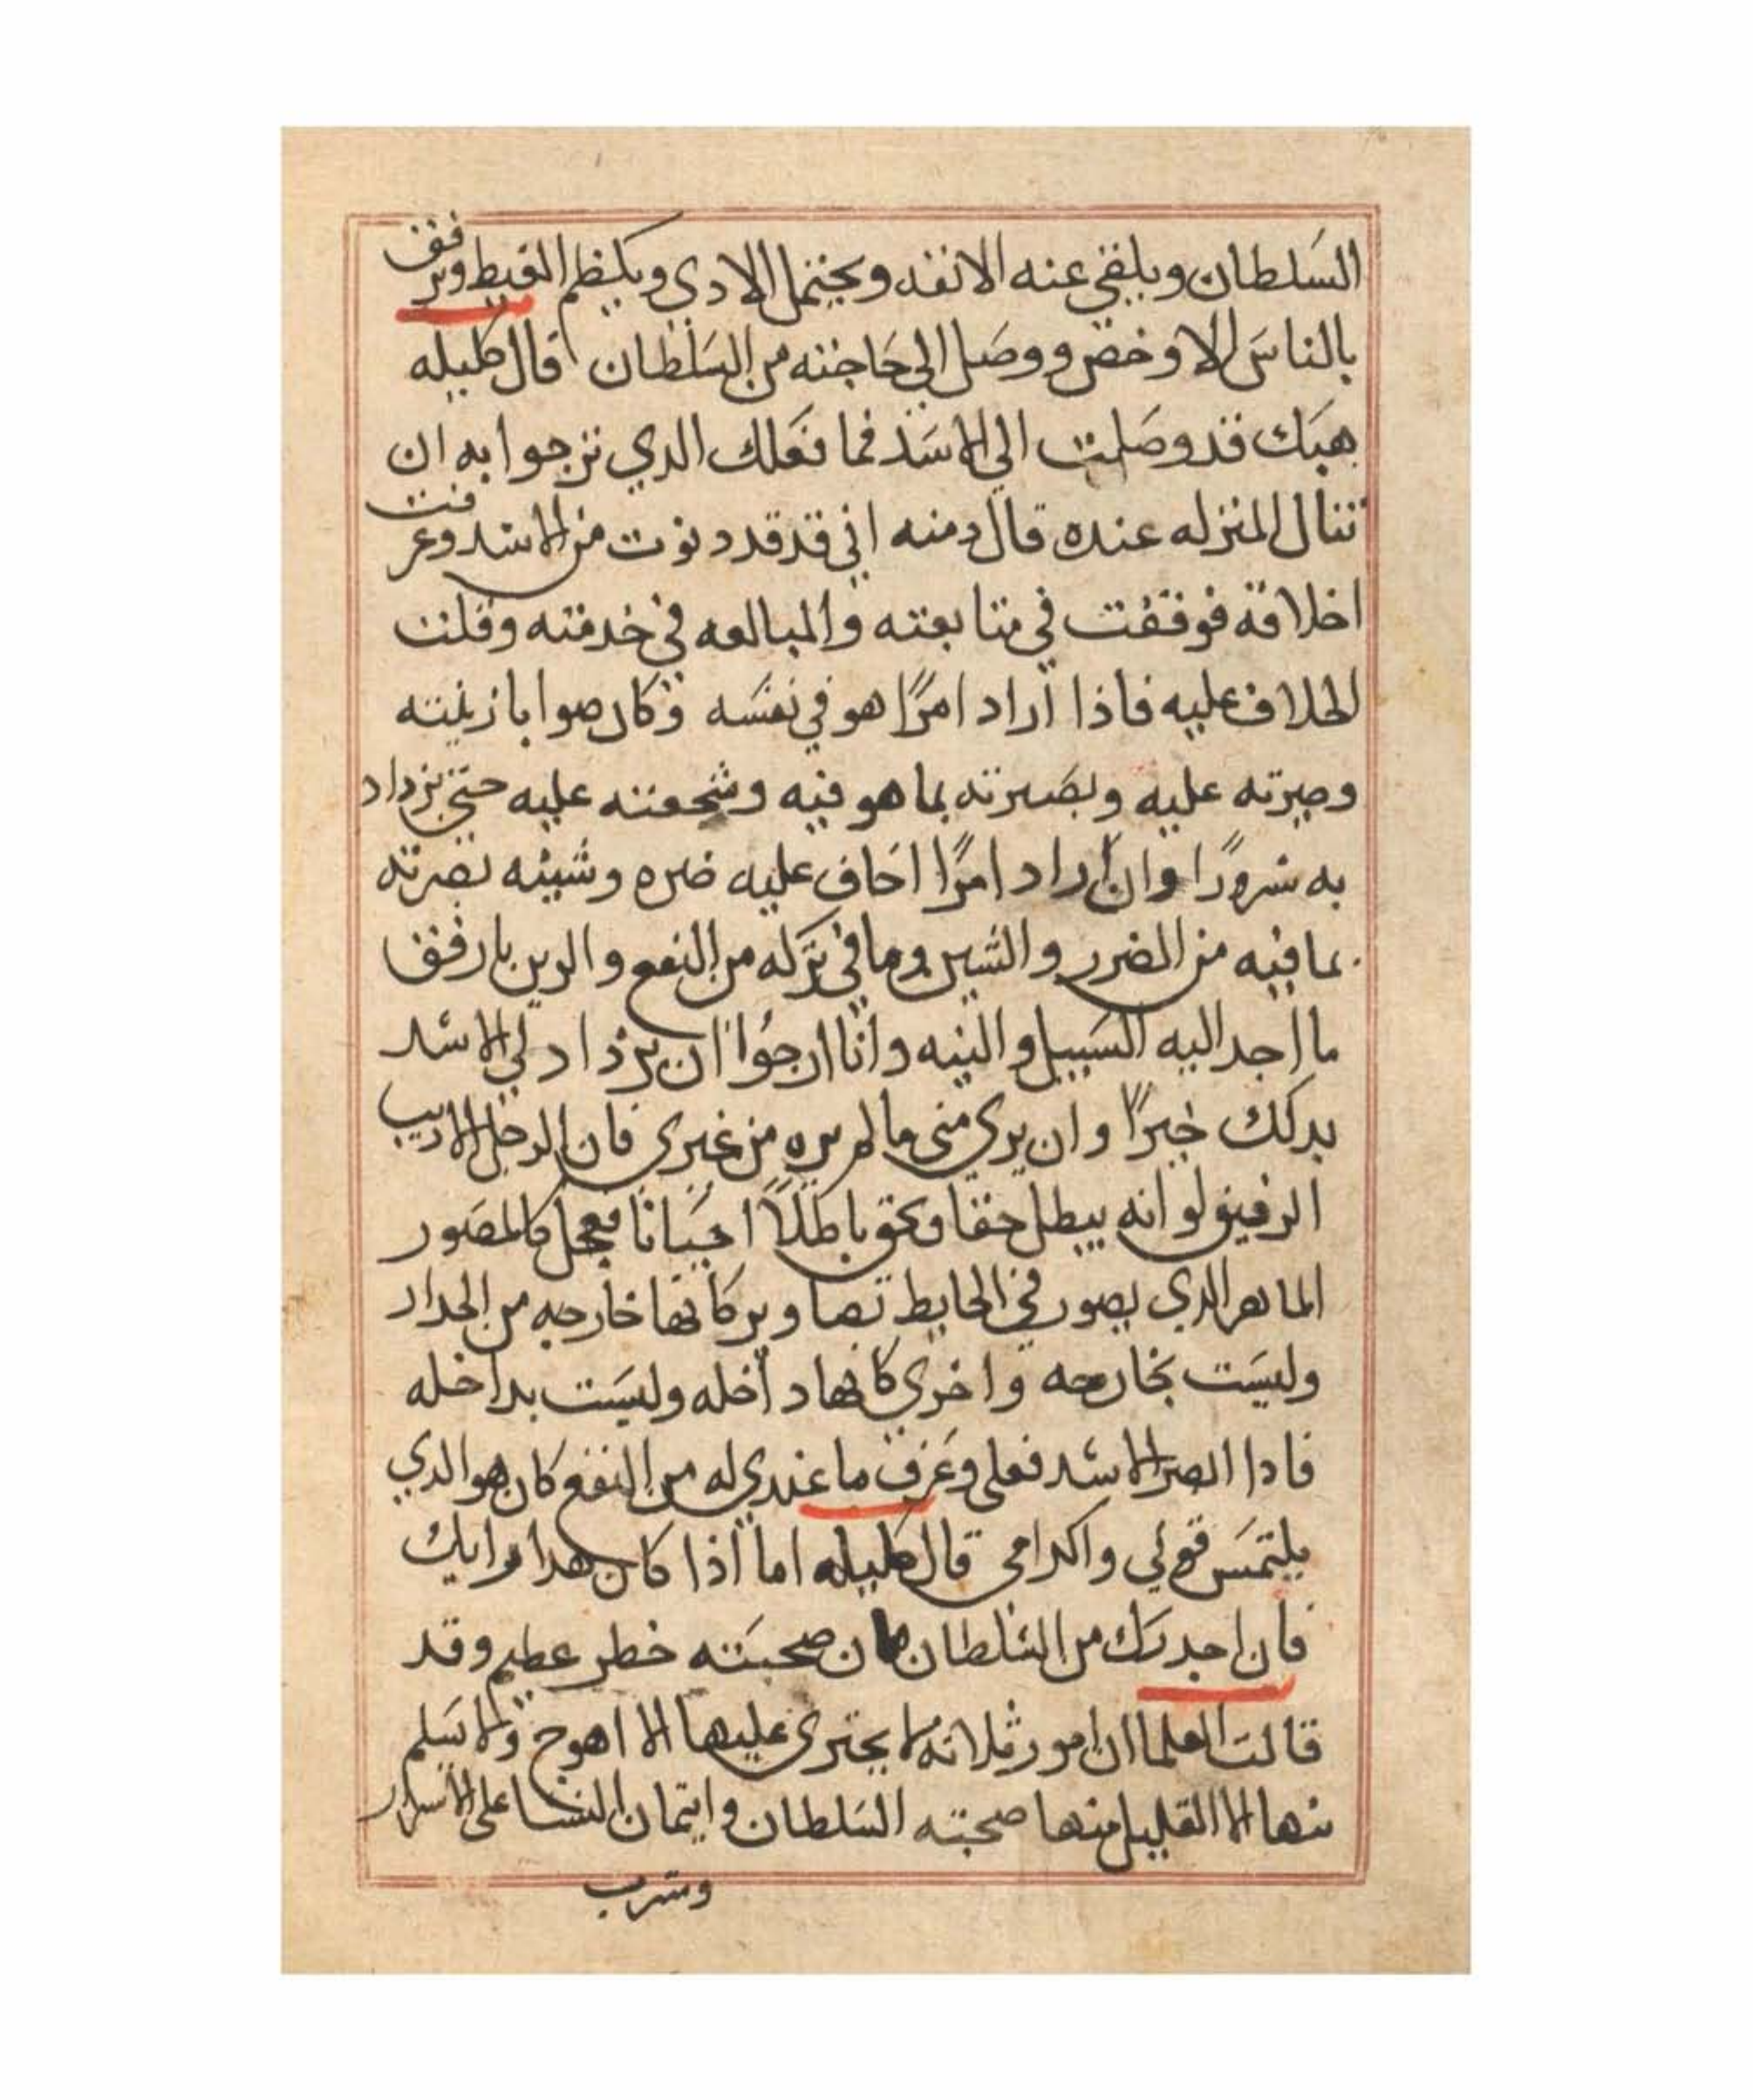 السلطان ويلقي عنه الانفه ويحتمل الادي ويكظم الغيظ ويرفق
بالناس الا وخص ووصل الي حاجته من السلطان قال كليله
هبك قد وصلت الي الاسد فما فعلك الدي ترجوا به ان
تنال المنزله عنده قال دمنه اني قد قد دنوت من الاسد وعرفت
اخلاقه فوقفت في متابعته والمبالعه في خدمته وقلت
الخلاف عليه فاذا اراد امرًا هو في نفسه وكان صوابا زينته
وصبرته عليه وبصرته بما هو فيه وشجعته عليه حتي يزداد
به سرورًا وان اراد امرًا اخاف عليه ضره وشينه بصرته
بما فيه من الضرر والشين وما في تركه من النفع والزين بارفق
ما اجد اليه السبيل والنيه وانا ارجوا ان يزداد لي الاسد
بدلك خيرًا وان يري مني ما لم يره من غيري فان الرجل الاديب
الرفيق لو انه يبطل حقا ويحق باطلاً احيانا فعجل كالمصور
الماهر الدي يصور في الحايط تصاوير كانها خارجه من الجدار
وليست بخارجه واخري كانها داخله وليست بداخله
فادا ابصر الاسد فعلي وعرف ما عندي له من النفع كان هو الدي
يلتمس قولي واكرامي قال كليله اما اذا كان هدا من رايك
فان احدرك من السلطان فان صحبته خطر عظيم وقد
قالت العلما ان امور ثلاثه لا يجتري عليها الا اهوج ولا يسلم
منها الا القليل منها صحبته السلطان وايتمان النسا على الاسرار
وشرب